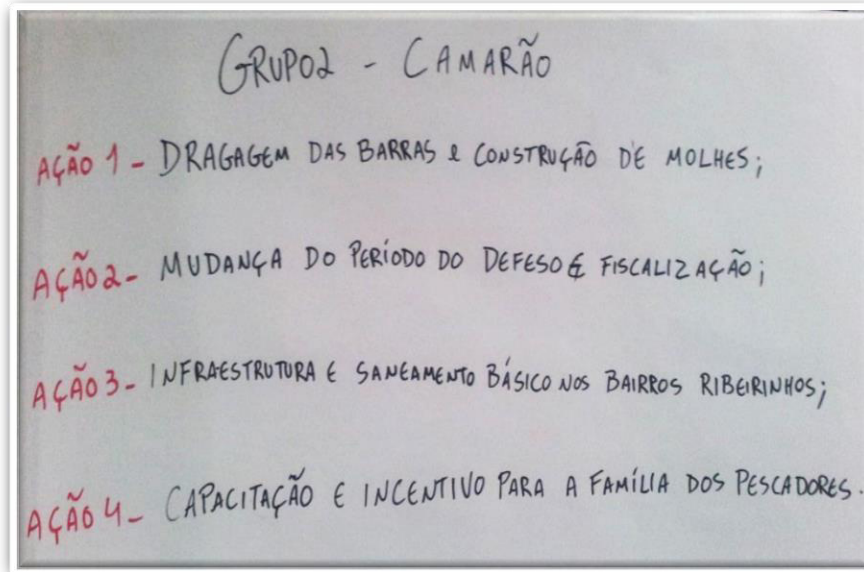 GRUPO2 - CAMARÃO
AÇÃO 1 - DRAGAGEM DAS BARRAS e CONSTRUÇÃO DE MOLHES;
AÇÃO 2 - MUDANÇA DO PERÍODO DO DEFESO E FISCALIZAÇÃO;
AÇÃO 3 - INFRAESTRUTURA E SANEAMENTO BÁSICO NOS BAIRROS RIBEIRINHOS;
AÇÃO 4 - CAPACITAÇÃO E INCENTIVO PARA A FAMÍLIA DOS PESCADORES.